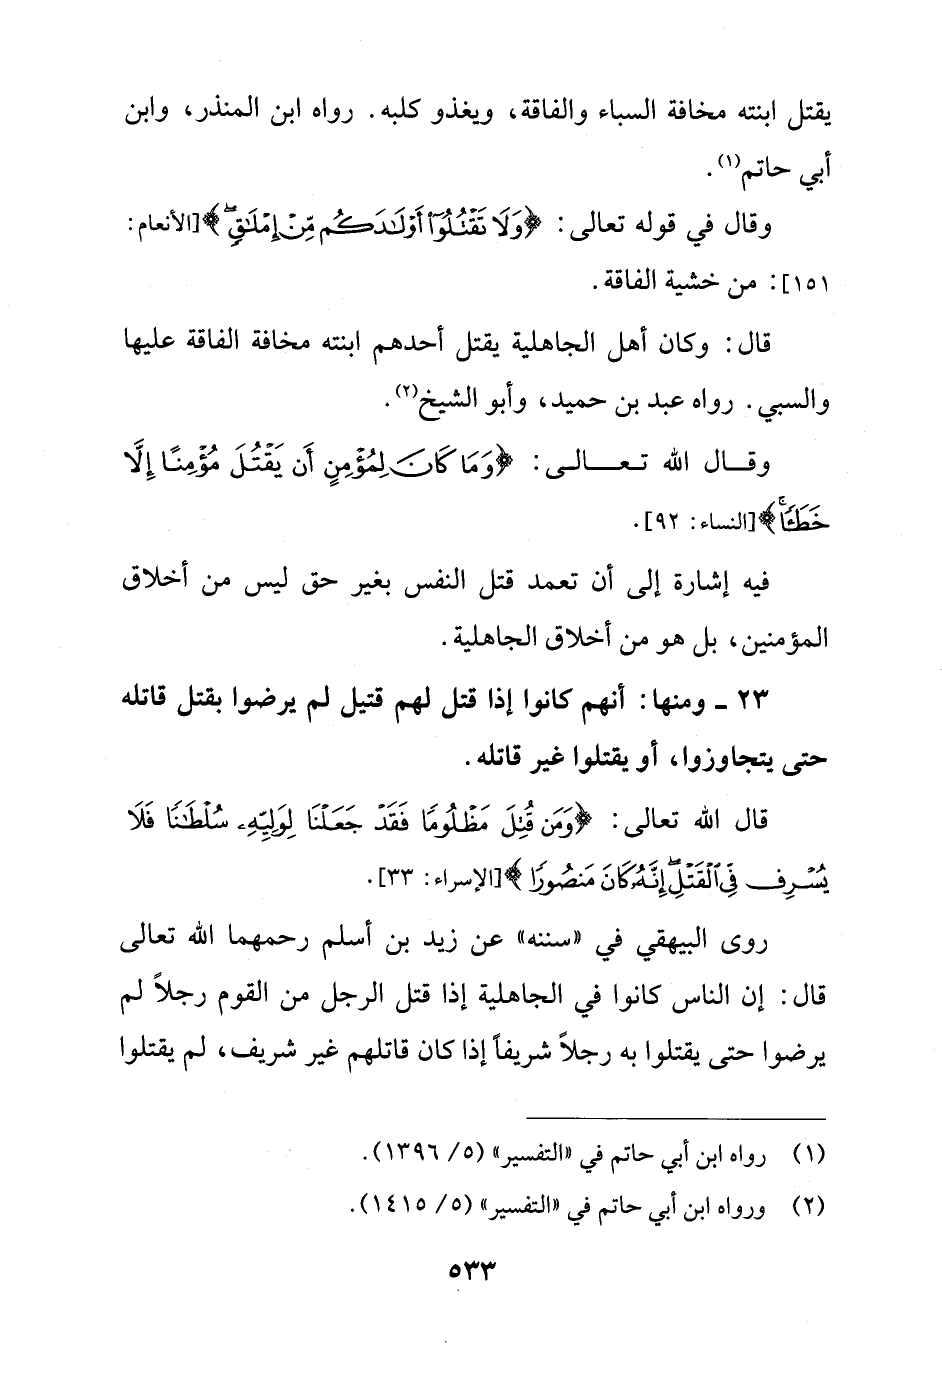 يقتل ابنته مخافة السباء والفاقة، ويغذو كلبه. رواه ابن المنذر، وابن
أبي حاتم(١).
وقال في قوله تعالى: ﴿وَلَا تَقْتُلُوٓا۟ أَوْلَٰدَكُم مِّنْ إِمْلَٰقٍ﴾ [الأنعام:
١٥١]: من خشية الفاقة.
قال: وكان أهل الجاهلية يقتل أحدهم ابنته مخافة الفاقة عليها
والسبي. رواه عبد بن حميد، وأبو الشيخ(٢).
وقال الله تعالى: ﴿وَمَا كَانَ لِمُؤْمِنٍ أَن يَقْتُلَ مُؤْمِنًا إِلَّا
خَطَـًٔا﴾ [النساء: ٩٢].
فيه إشارة إلى أن تعمد قتل النفس بغير حق ليس من أخلاق
المؤمنين، بل هو من أخلاق الجاهلية.
٢٣ ـ ومنها: أنهم كانوا إذا قتل لهم قتيل لم يرضوا بقتل قاتله
حتى يتجاوزوا، أو يقتلوا غير قاتله.
قال الله تعالى: ﴿وَمَن قُتِلَ مَظْلُومًا فَقَدْ جَعَلْنَا لِوَلِيِّهِۦ سُلْطَٰنًا فَلَا
يُسْرِف فِّى ٱلْقَتْلِ إِنَّهُۥ كَانَ مَنصُورًا﴾ [الإسراء: ٣٣].
روى البيهقي في «سننه» عن زيد بن أسلم رحمهما الله تعالى
قال: إن الناس كانوا في الجاهلية إذا قتل الرجل من القوم رجلاً لم
يرضوا حتى يقتلوا به رجلاً شريفاً إذا كان قاتلهم غير شريف، لم يقتلوا
(١) رواه ابن أبي حاتم في «التفسير» (٥/ ١٣٩٦).
(٢) ورواه ابن أبي حاتم في «التفسير» (٥/ ١٤١٥).
٥٣٣